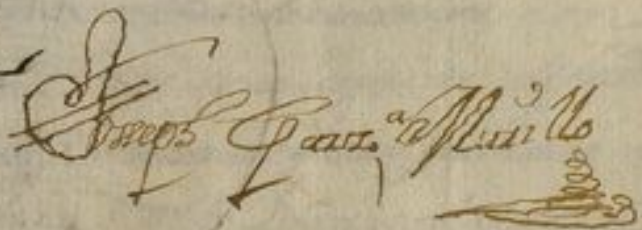 Joseph Garz.ª Murillo